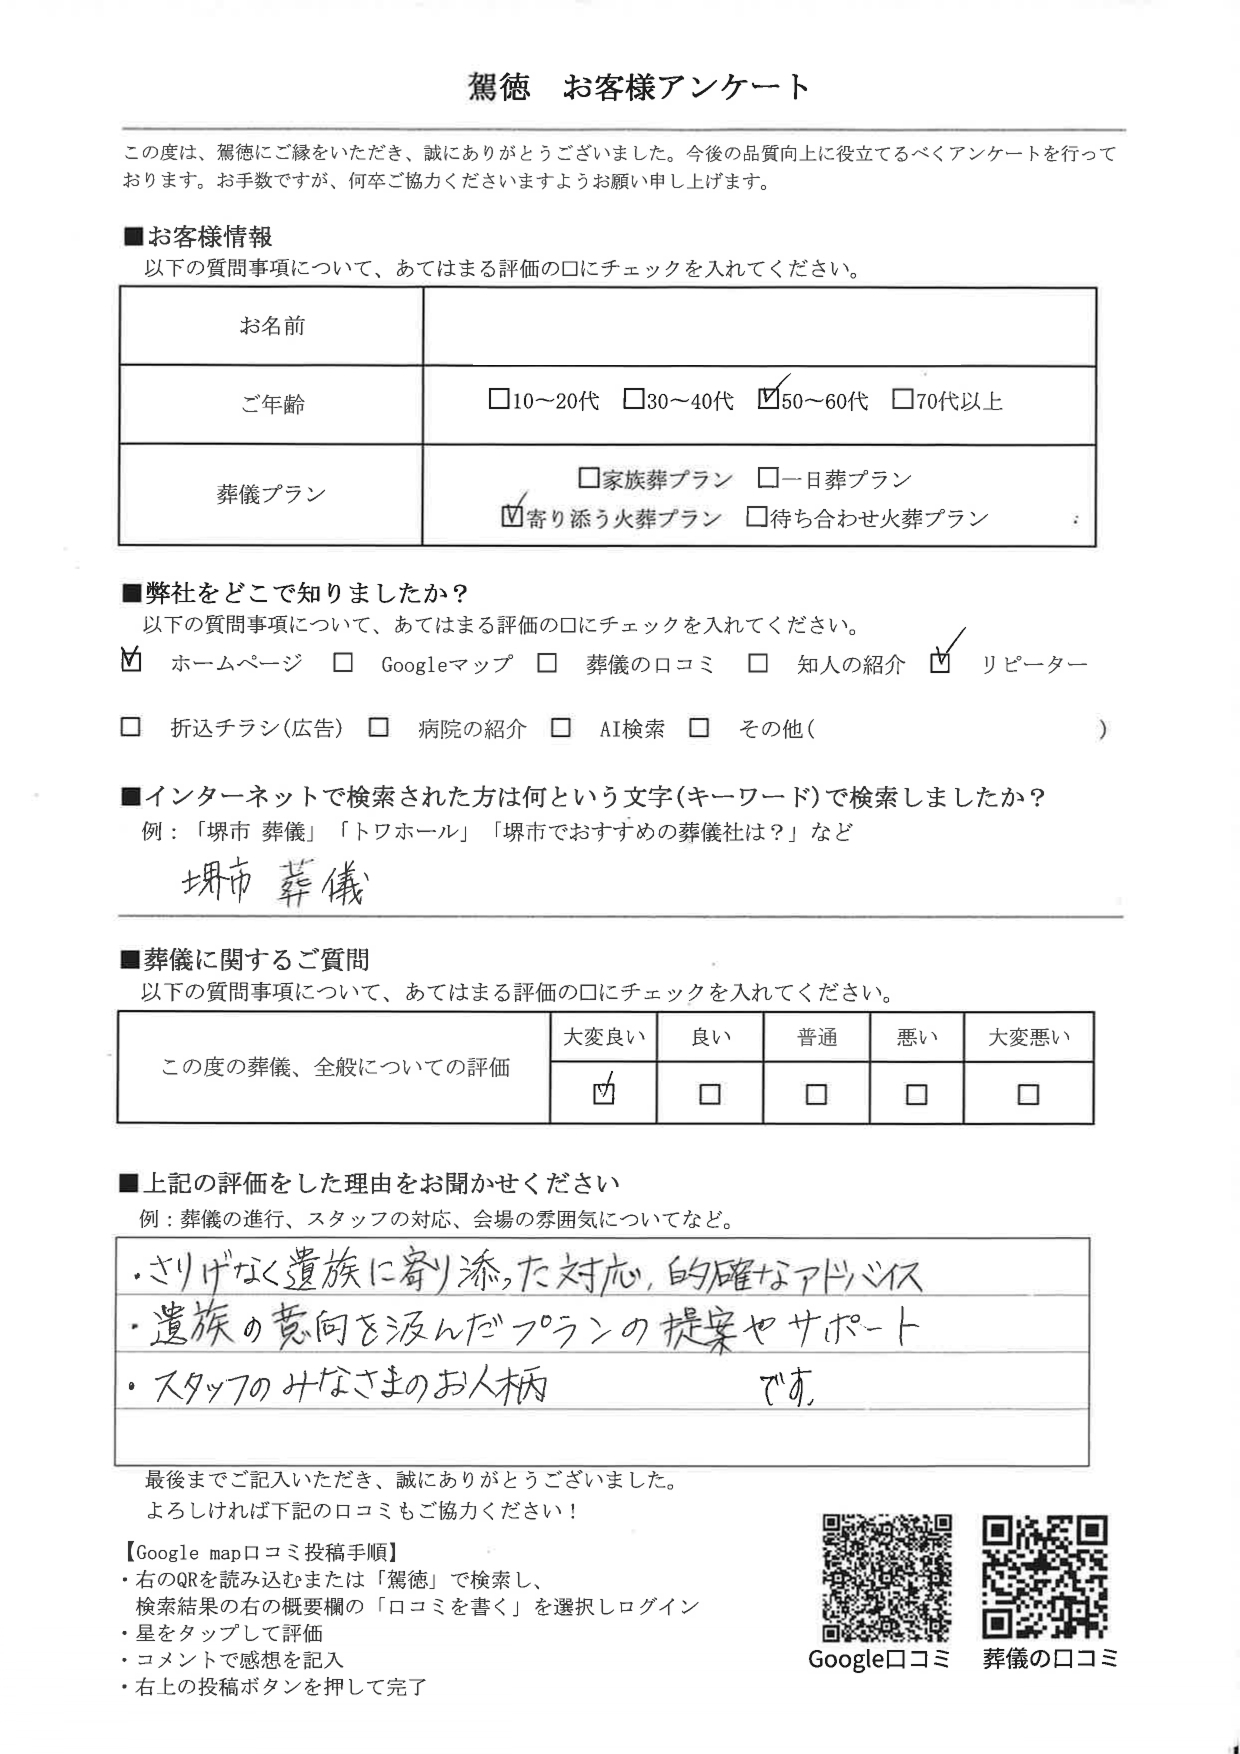 駕徳　お客様アンケート
この度は、駕徳にご縁をいただき、誠にありがとうございました。今後の品質向上に役立てるべくアンケートを行って
おります。お手数ですが、何卒ご協力くださいますようお願い申し上げます。
■お客様情報
以下の質問事項について、あてはまる評価の口にチェックを入れてください。
お名前
ご年齢 □10～20代 □30～40代 ☑50～60代 □70代以上
葬儀プラン □家族葬プラン □一日葬プラン
☑寄り添う火葬プラン □待ち合わせ火葬プラン
■弊社をどこで知りましたか？
以下の質問事項について、あてはまる評価の口にチェックを入れてください。
☑ ホームページ □ Googleマップ □ 葬儀の口コミ □ 知人の紹介 ☑ リピーター
□ 折込チラシ(広告) □ 病院の紹介 □ AI検索 □ その他( )
■インターネットで検索された方は何という文字(キーワード)で検索しましたか？
例：「堺市 葬儀」「トワホール」「堺市でおすすめの葬儀社は？」など
堺市 葬儀
■葬儀に関するご質問
以下の質問事項について、あてはまる評価の口にチェックを入れてください。
この度の葬儀、全般についての評価 大変良い 良い 普通 悪い 大変悪い
☑ □ □ □ □
■上記の評価をした理由をお聞かせください
例：葬儀の進行、スタッフの対応、会場の雰囲気についてなど。
・さりげなく遺族に寄り添った対応，的確なアドバイス
・遺族の意向を汲んだプランの提案やサポート
・スタッフのみなさまのお人柄 です。
最後までご記入いただき、誠にありがとうございました。
よろしければ下記の口コミもご協力ください！
【Google map口コミ投稿手順】
・右のQRを読み込むまたは「駕徳」で検索し、
検索結果の右の概要欄の「口コミを書く」を選択しログイン
・星をタップして評価
・コメントで感想を記入
・右上の投稿ボタンを押して完了
Google口コミ 葬儀の口コミ